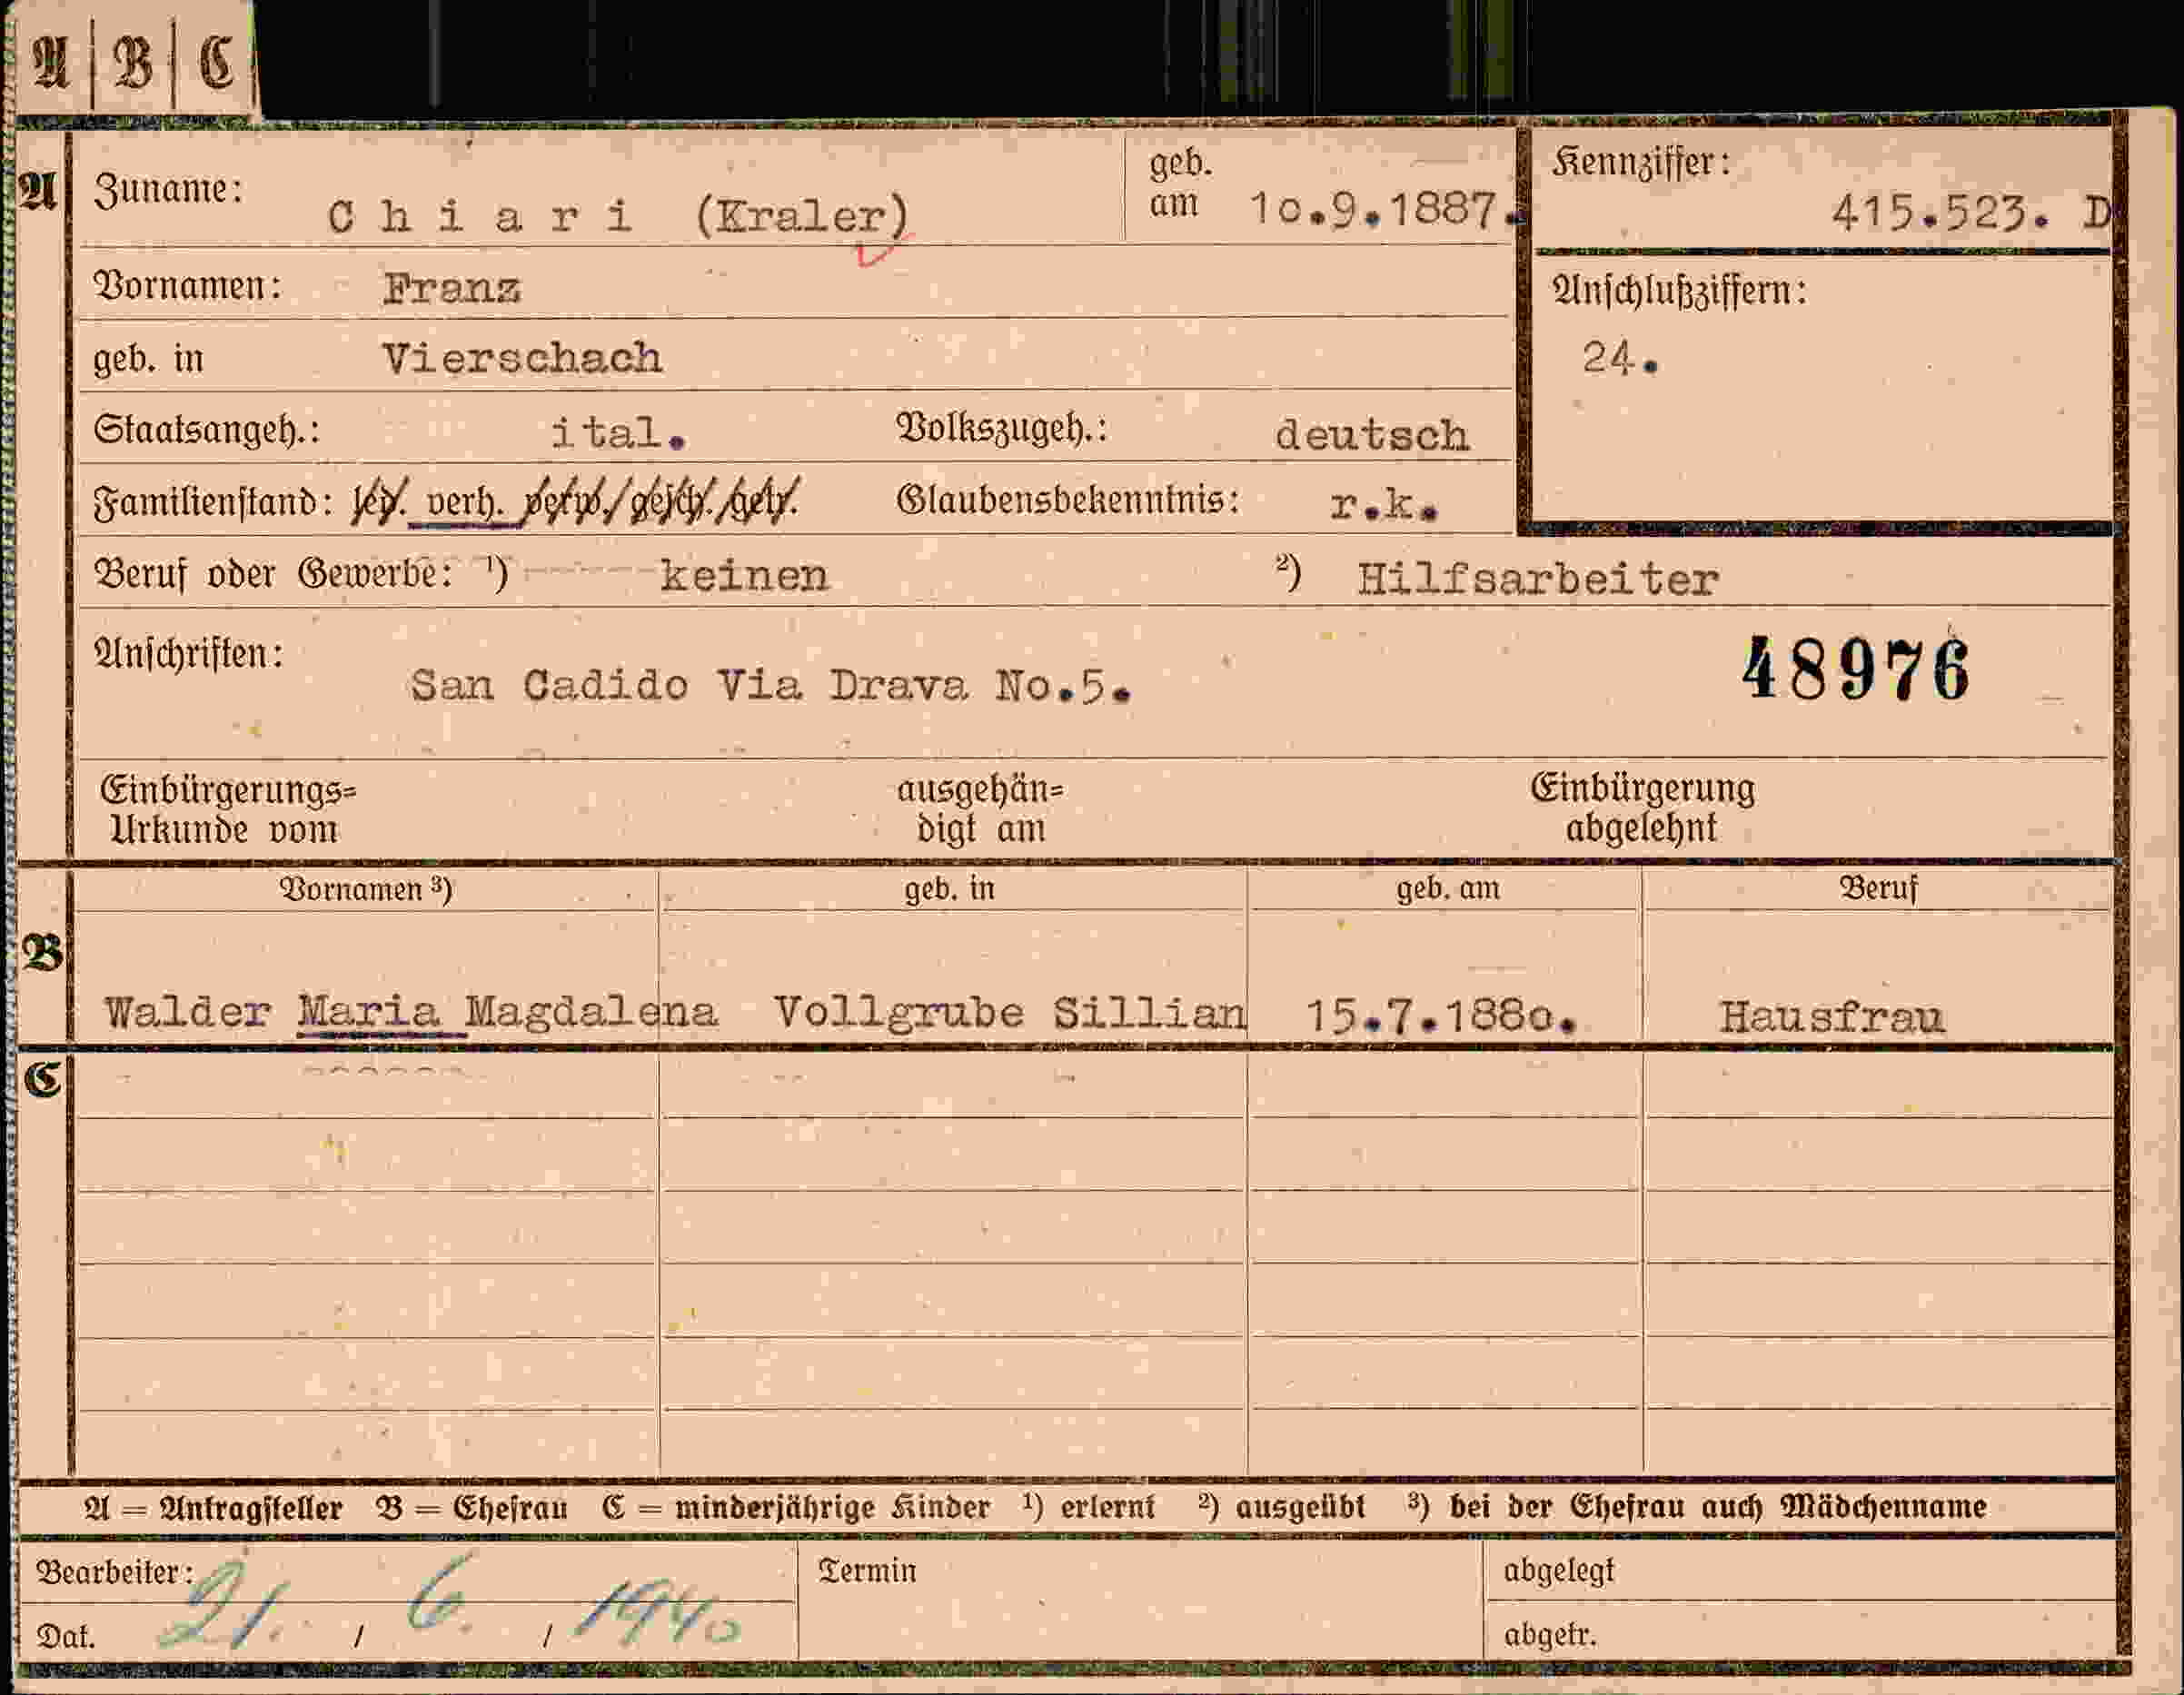 A | B | C
A Zuname: Chiari (Kraler) geb. am 1o.9.1887. Kennziffer: 415.523. D
Vornamen: Franz Anschlußziffern:
geb. in Vierschach 24.
Staatsangeh.: ital. Volkszugeh.: deutsch
Familienstand: led. verh. verw./gesch./getr. Glaubensbekenntnis: r.k.
Beruf oder Gewerbe: ¹) keinen ²) Hilfsarbeiter
Anschriften: San Cadido Via Drava No.5. 48976
Einbürgerungs= ausgehän= Einbürgerung
Urkunde vom digt am abgelehnt
Vornamen ³) geb. in geb. am Beruf
B Walder Maria Magdalena Vollgrube Sillian 15.7.188o. Hausfrau
C
A = Antragsteller B = Ehefrau C = minderjährige Kinder ¹) erlernt ²) ausgeübt ³) bei der Ehefrau auch Mädchenname
Bearbeiter: Termin abgelegt
Dat. 21. / 6. / 1940 abgetr.